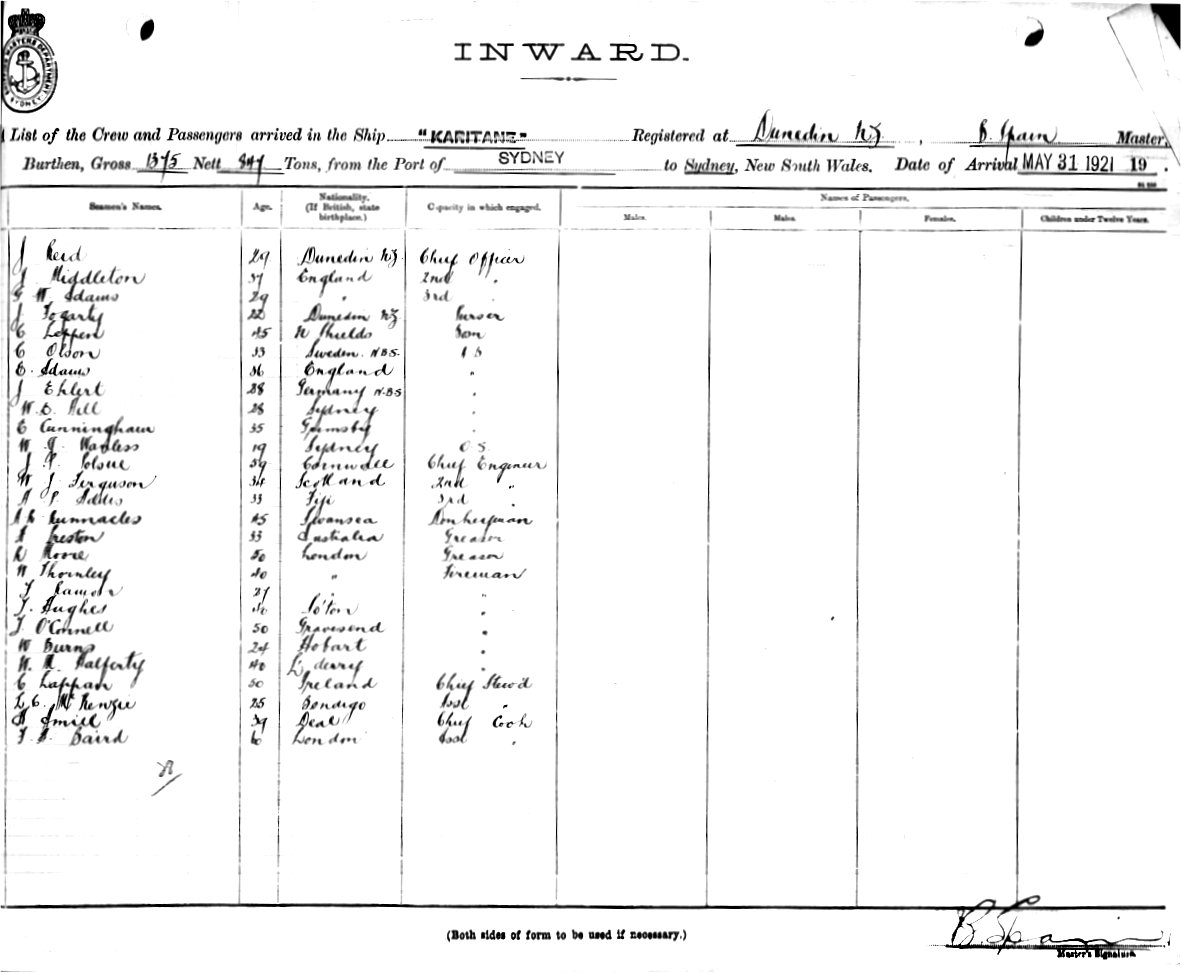 INWARD.
SYDNEY
List of the Crew and Passengers arrived in the Ship "KARITANE" Registered at Dunedin NZ, B. Spain Master,
Burthen, Gross 1375 Nett 847 Tons, from the Port of SYDNEY to Sydney, New South Wales. Date of Arrival MAY 31 1921 19 .
Seamen's Names. Age. Nationality. (If British, state birthplace.) Capacity in which engaged. Names of Passengers.
Males. Males. Females. Children under Twelve Years.
J Reid 29 Dunedin NZ. Chief Officer
J Middleton 37 England 2nd "
G W. Adams 29 " 3rd "
J Fogarty 22 Dunedin NZ Purser
C Leppen 45 N Shields
C Olson 33 Sweden. N.B.S. A S
E. Adams 36 England "
J Ehlert 28 Germany N.B.S "
W. D. Hill 28 Sydney "
C Cunningham 35 Grimsby "
W. J. Wanless 19 Sydney O.S.
J. P. 59 Cornwall Chief Engineer
W J. Ferguson 34 Scotland 2nd "
33 Fiji 3rd "
Runnacles 45 Swansea Donkeyman
A Preston 33 Australia Greaser
R Moore 50 London Greaser
W Thornley 40 " Fireman
27 " "
T. Hughes So'ton "
T. O'Connell 50 Gravesend "
W Burns 24 Hobart "
W. M. Halferty 40 L'derry "
C Lappan 50 Ireland Chief Stew'd
L. C. McKenzie 25 Bendigo Asst "
39 Deal Chief Cook
T. B. Baird London Asst "
(Both sides of form to be used if necessary.)
B. Spain
Master's Signature.